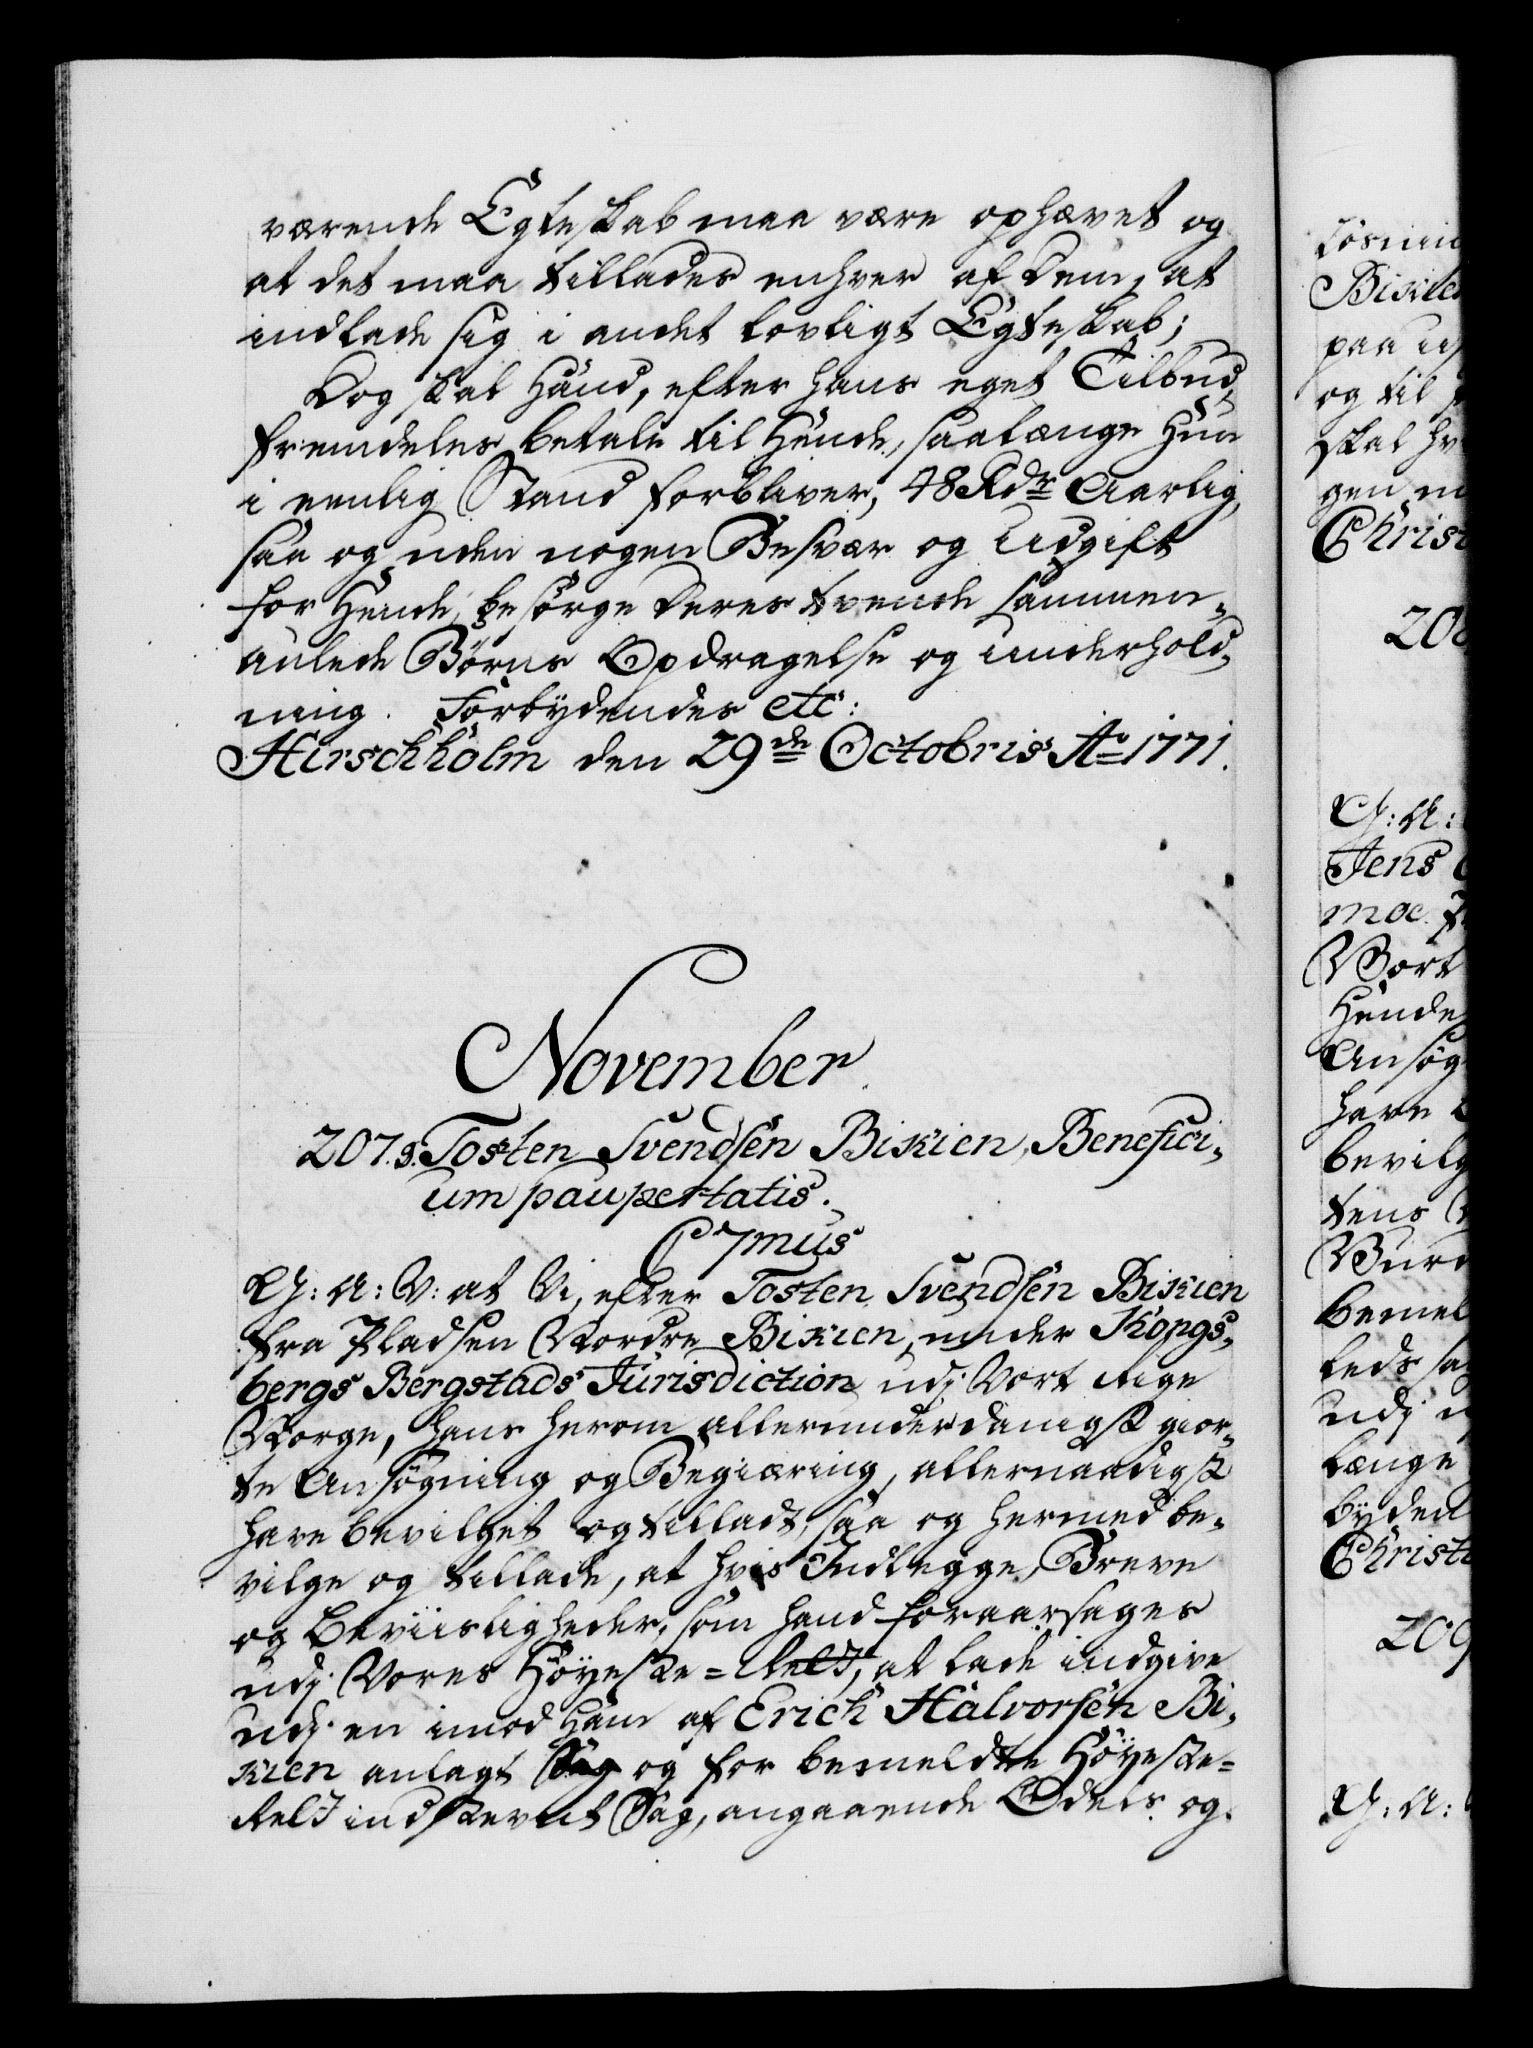 værende Egteskab maa være ophævet og
at det maa tillades enhver af dem, at
indlade sig i andet lovligt Egteskab;
Dog skal Hand, efter hans eget Tilbud,
fremdeles betale til Hende, saalænge Hun
i eenlig Stand forbliver, 48 Rdr Aarlig,
saa og uden nogen Besvær og Udgift
for Hende, besörge deres tvende sammen-
aulede Börns Opdragelse og Underhold-
ning. Forbydendes etc:
Hirschholm den 29de Octobris Ao 1771.
November.
207. s. Tosten Svendsen Bikien, Benefici-
um paupertatis.
C7mus
G: A: V: at Vi, efter Tosten Svendsen Bikien
fra Pladsen Nordre Bikien, under Kongs-
bergs Bergstads Jurisdiction udj Vort Rige
Norge, hans herom allerunderdanigst gior-
te Ansögning og Begiæring, allernaadigst
have bevilget og tilladt, saa og hermed be-
vilge og tillade, at hvis Indlegge, Breve
og Beviisligheder, som hand foraarsages
udj Vores Höyeste=Rett, at lade indgive
udj en imod Ham af Erich Halvorsen Bi-
kien anlagt Sag og for bemeldte Höyeste=
Rett indstevnt Sag, angaaende Odels og
Bikien
paa
og til
skal
gen
Christ
208
G: A:
Jens
moe
Vort
Hende
Ansög
have
bevilg
tens
bemel
leds
udj
længe
byden
Christ
209
G: A: